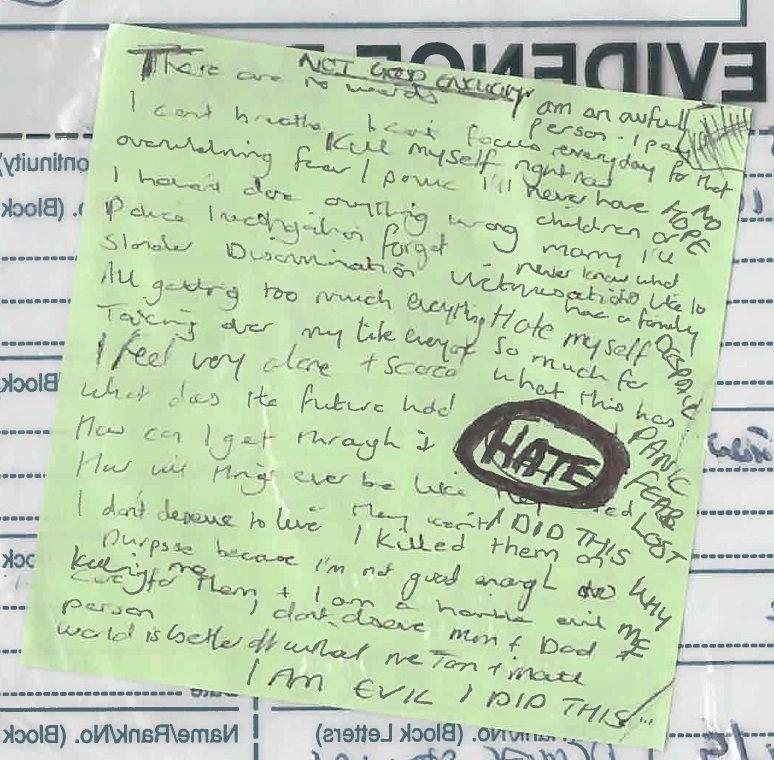 EVIDENCE
NOT GOOD ENOUGH
There are no words
I am an awful
person. I pay
everyday for that
I can't breathe I can't focus
Kill myself right now
overwhelming fear I panic I'll never have
NO
HOPE
children or
marry I'll
never know what
like to
have a family
I haven't done anything wrong
Police Investigation forget
Slander Discrimination victimisation
All getting too much everything Hate myself
so much for
what this has
DESPAIR
Taking over my life everyday
I feel very alone + scared
What does the future hold
How can I get through it
HATE
PANIC
FEAR
LOST
How will things ever be like
they
I DID THIS
WHY
ME
I don't deserve to live I killed them on
purpose because I'm not good enough to
care for them + I am a horrible evil
person
killing me
I don't deserve mum + Dad
world is better off without me
I AM EVIL I DID THIS
Continuity)
(Block
Block
Date
Name/Rank/No. (Block
Rank/No. (Block Letters)